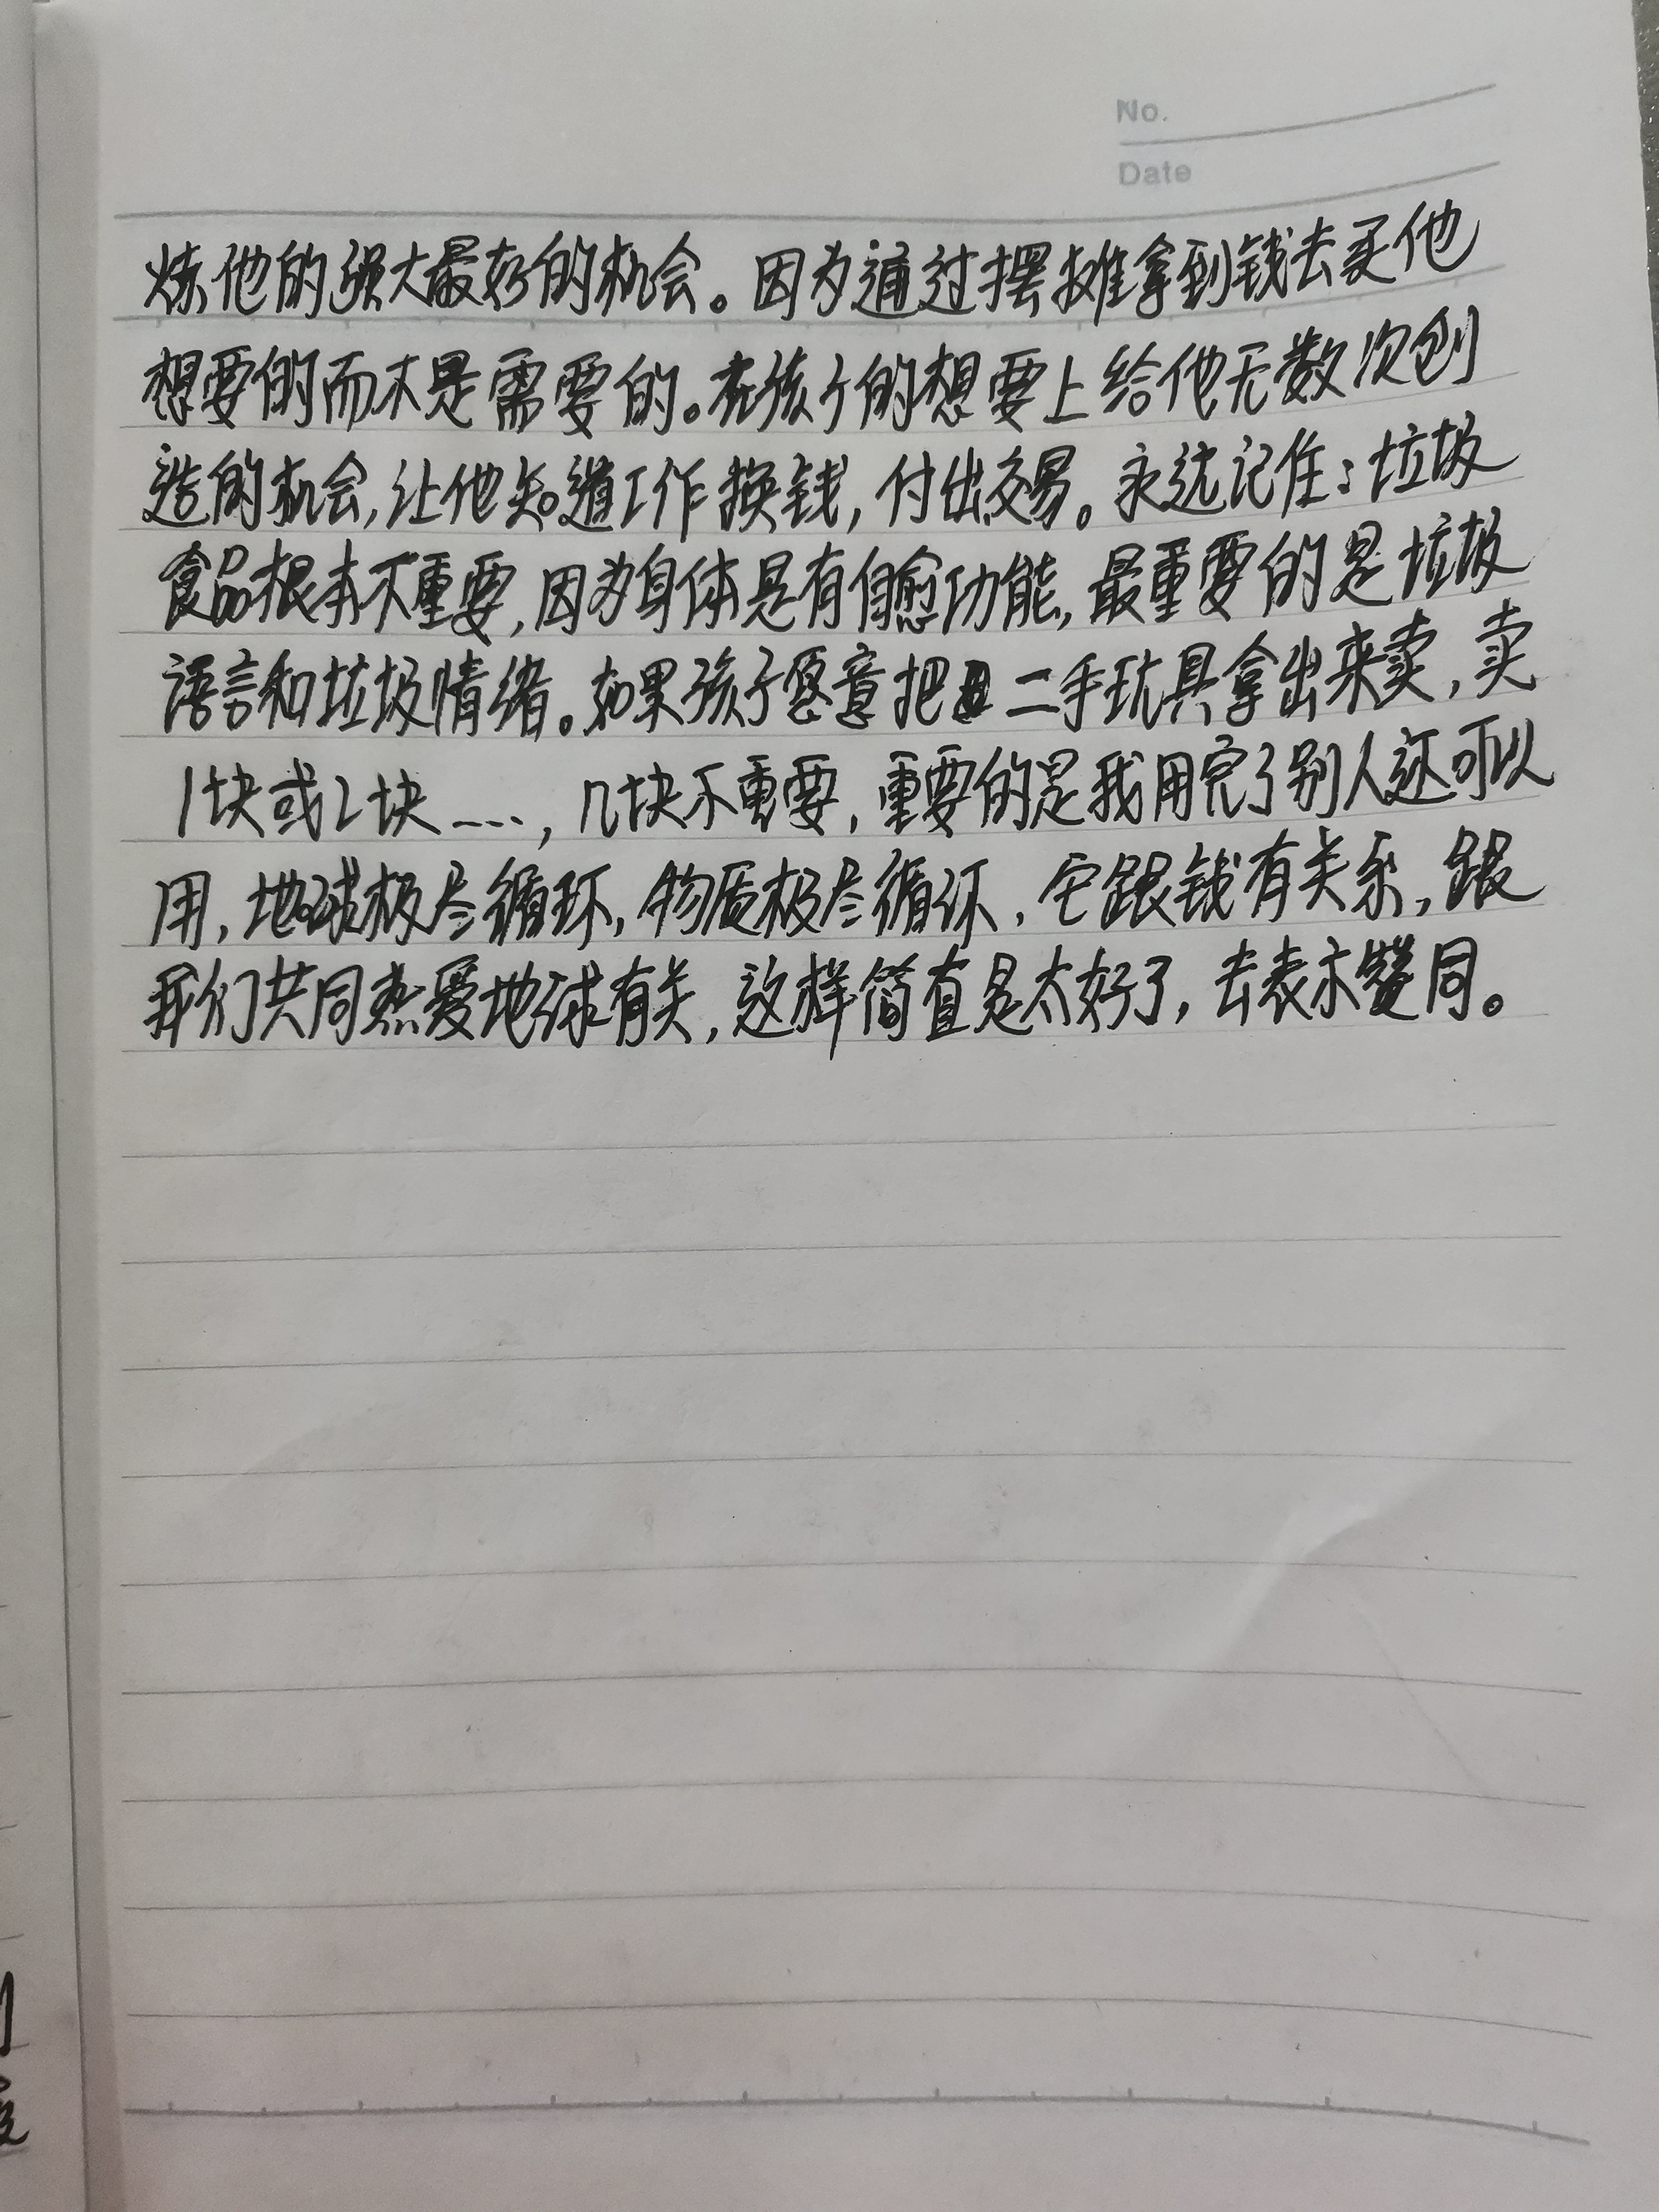 No.
Date
炼他的强大最好的机会。因为通过摆摊拿到钱去买他
想要的而不是需要的。在孩子的想要上给他无数次创
造的机会,让他知道工作换钱,付出交易。永远记住:垃圾
食品根本不重要,因为身体是有自愈功能,最重要的是垃圾
语言和垃圾情绪。如果孩子愿意把二手玩具拿出来卖,卖
1块或2块....,几块不重要,重要的是我用完了别人还可以
用,地球极尽循环,物质极尽循环,它跟钱有关系,跟
我们共同热爱地球有关,这样简直是太好了,去表示赞同。